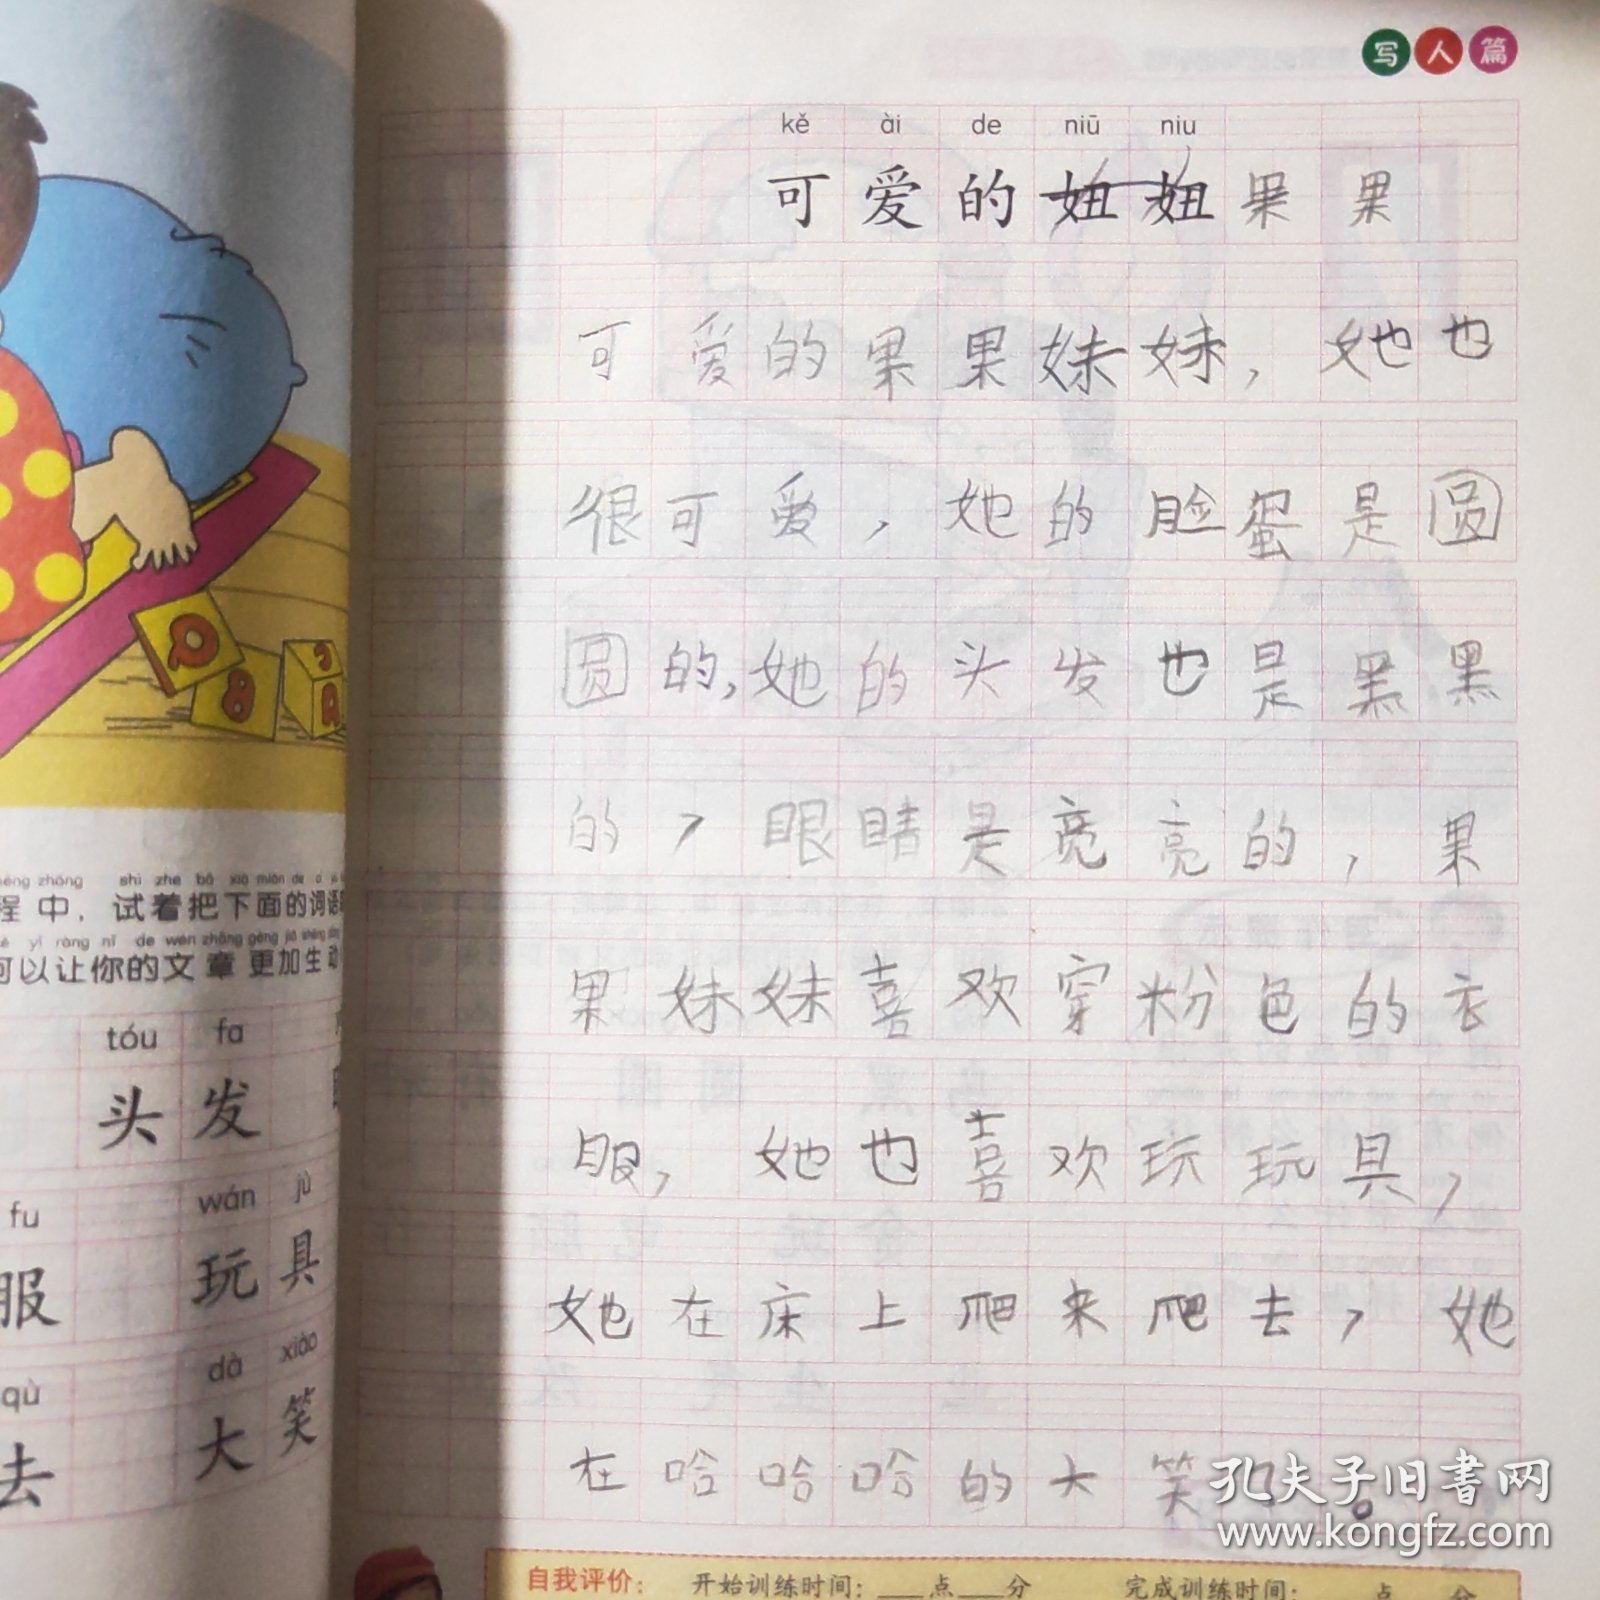 写人篇
kě ài de niū niu
可爱的妞妞果果
可爱的果果妹妹，她也
很可爱，她的脸蛋是圆
圆的，她的头发也是黑黑
的，眼睛是亮亮的，果
果妹妹喜欢穿粉色的衣
服，她也喜欢玩玩具，
她在床上爬来爬去，她
在哈哈哈的大笑
孔夫子旧书网
www.kongfz.com
自我评价： 开始训练时间：___点___分 完成训练时间：___点___分
zhōng shì zhe bǎ xià miàn de
程中，试着把下面的词语
yǐ ràng nǐ de wén zhāng gèng jiā shēng dòng
可以让你的文章更加生动
tóu fa
头发
fu wán jù
服 玩具
qù dà xiào
去 大笑